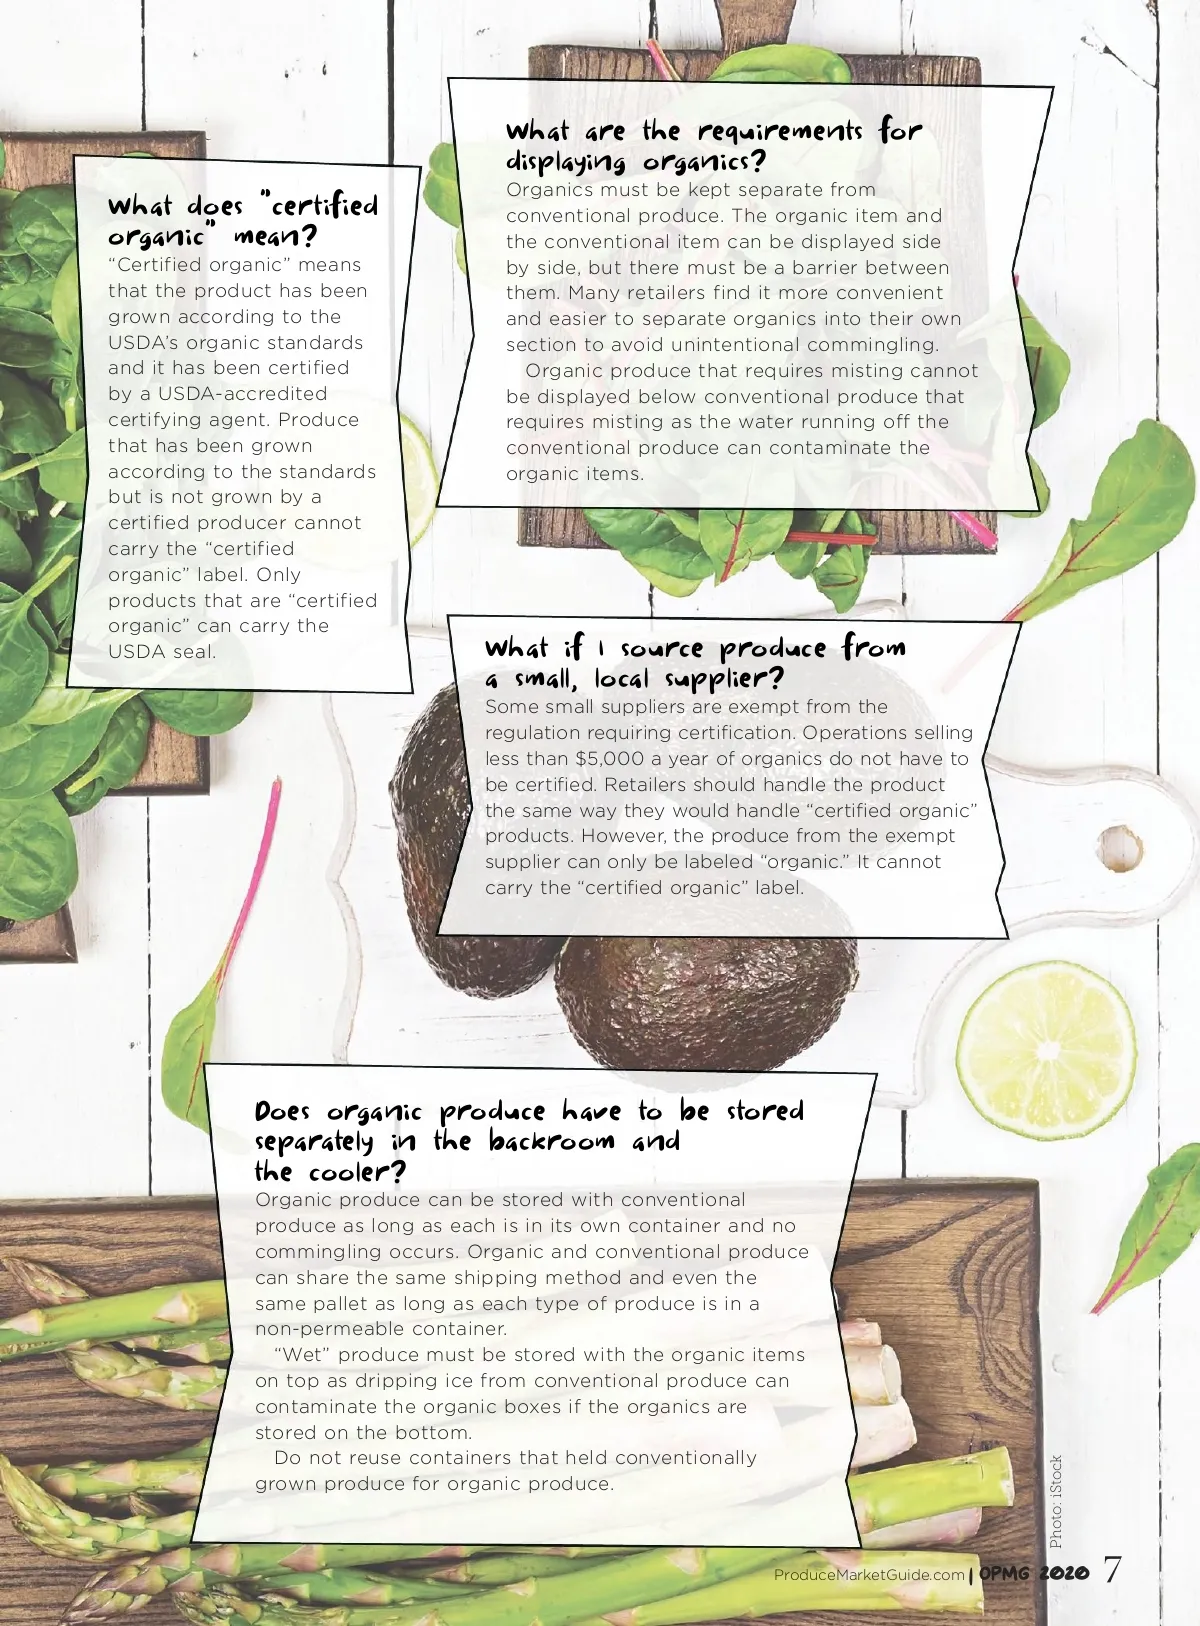 What does "certified
organic" mean?
“Certified organic” means
that the product has been
grown according to the
USDA’s organic standards
and it has been certified
by a USDA-accredited
certifying agent. Produce
that has been grown
according to the standards
but is not grown by a
certified producer cannot
carry the “certified
organic” label. Only
products that are “certified
organic” can carry the
USDA seal.
What are the requirements for
displaying organics?
Organics must be kept separate from
conventional produce. The organic item and
the conventional item can be displayed side
by side, but there must be a barrier between
them. Many retailers find it more convenient
and easier to separate organics into their own
section to avoid unintentional commingling.
Organic produce that requires misting cannot
be displayed below conventional produce that
requires misting as the water running off the
conventional produce can contaminate the
organic items.
What if I source produce from
a small, local supplier?
Some small suppliers are exempt from the
regulation requiring certification. Operations selling
less than $5,000 a year of organics do not have to
be certified. Retailers should handle the product
the same way they would handle “certified organic”
products. However, the produce from the exempt
supplier can only be labeled “organic.” It cannot
carry the “certified organic” label.
Does organic produce have to be stored
separately in the backroom and
the cooler?
Organic produce can be stored with conventional
produce as long as each is in its own container and no
commingling occurs. Organic and conventional produce
can share the same shipping method and even the
same pallet as long as each type of produce is in a
non-permeable container.
“Wet” produce must be stored with the organic items
on top as dripping ice from conventional produce can
contaminate the organic boxes if the organics are
stored on the bottom.
Do not reuse containers that held conventionally
grown produce for organic produce.
Photo: iStock
ProduceMarketGuide.com | OPMG 2020 7